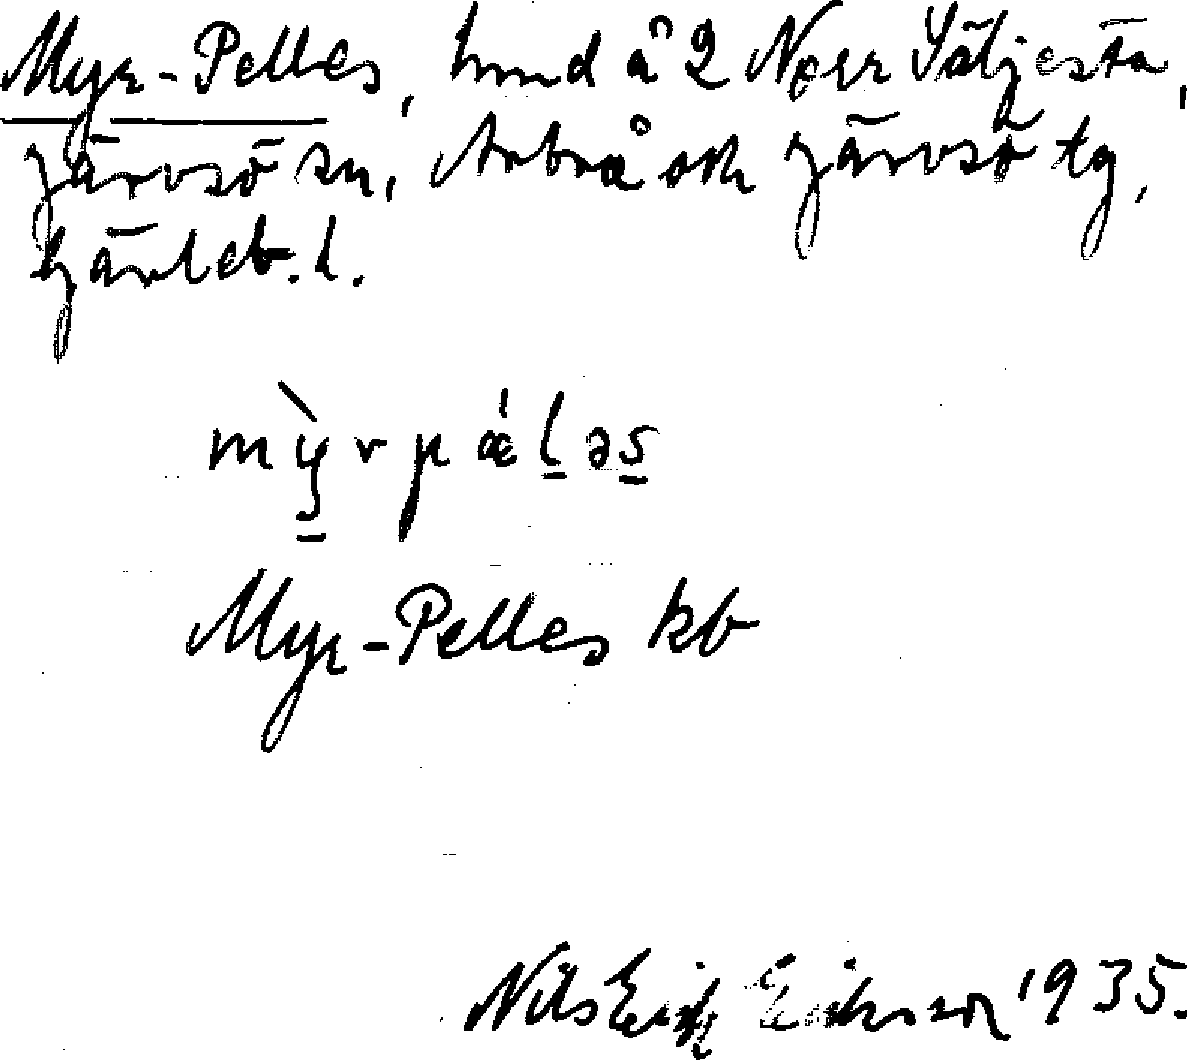 Myr-Pelles, hmd å 2 Norr Säljesta,
Järvsö sn, Arbrå och Järvsö tg,
Gävleb. l.
mỳrpǽḻəs̱
Myr-Pelles kb
Nils Erik Eriksson 1935.